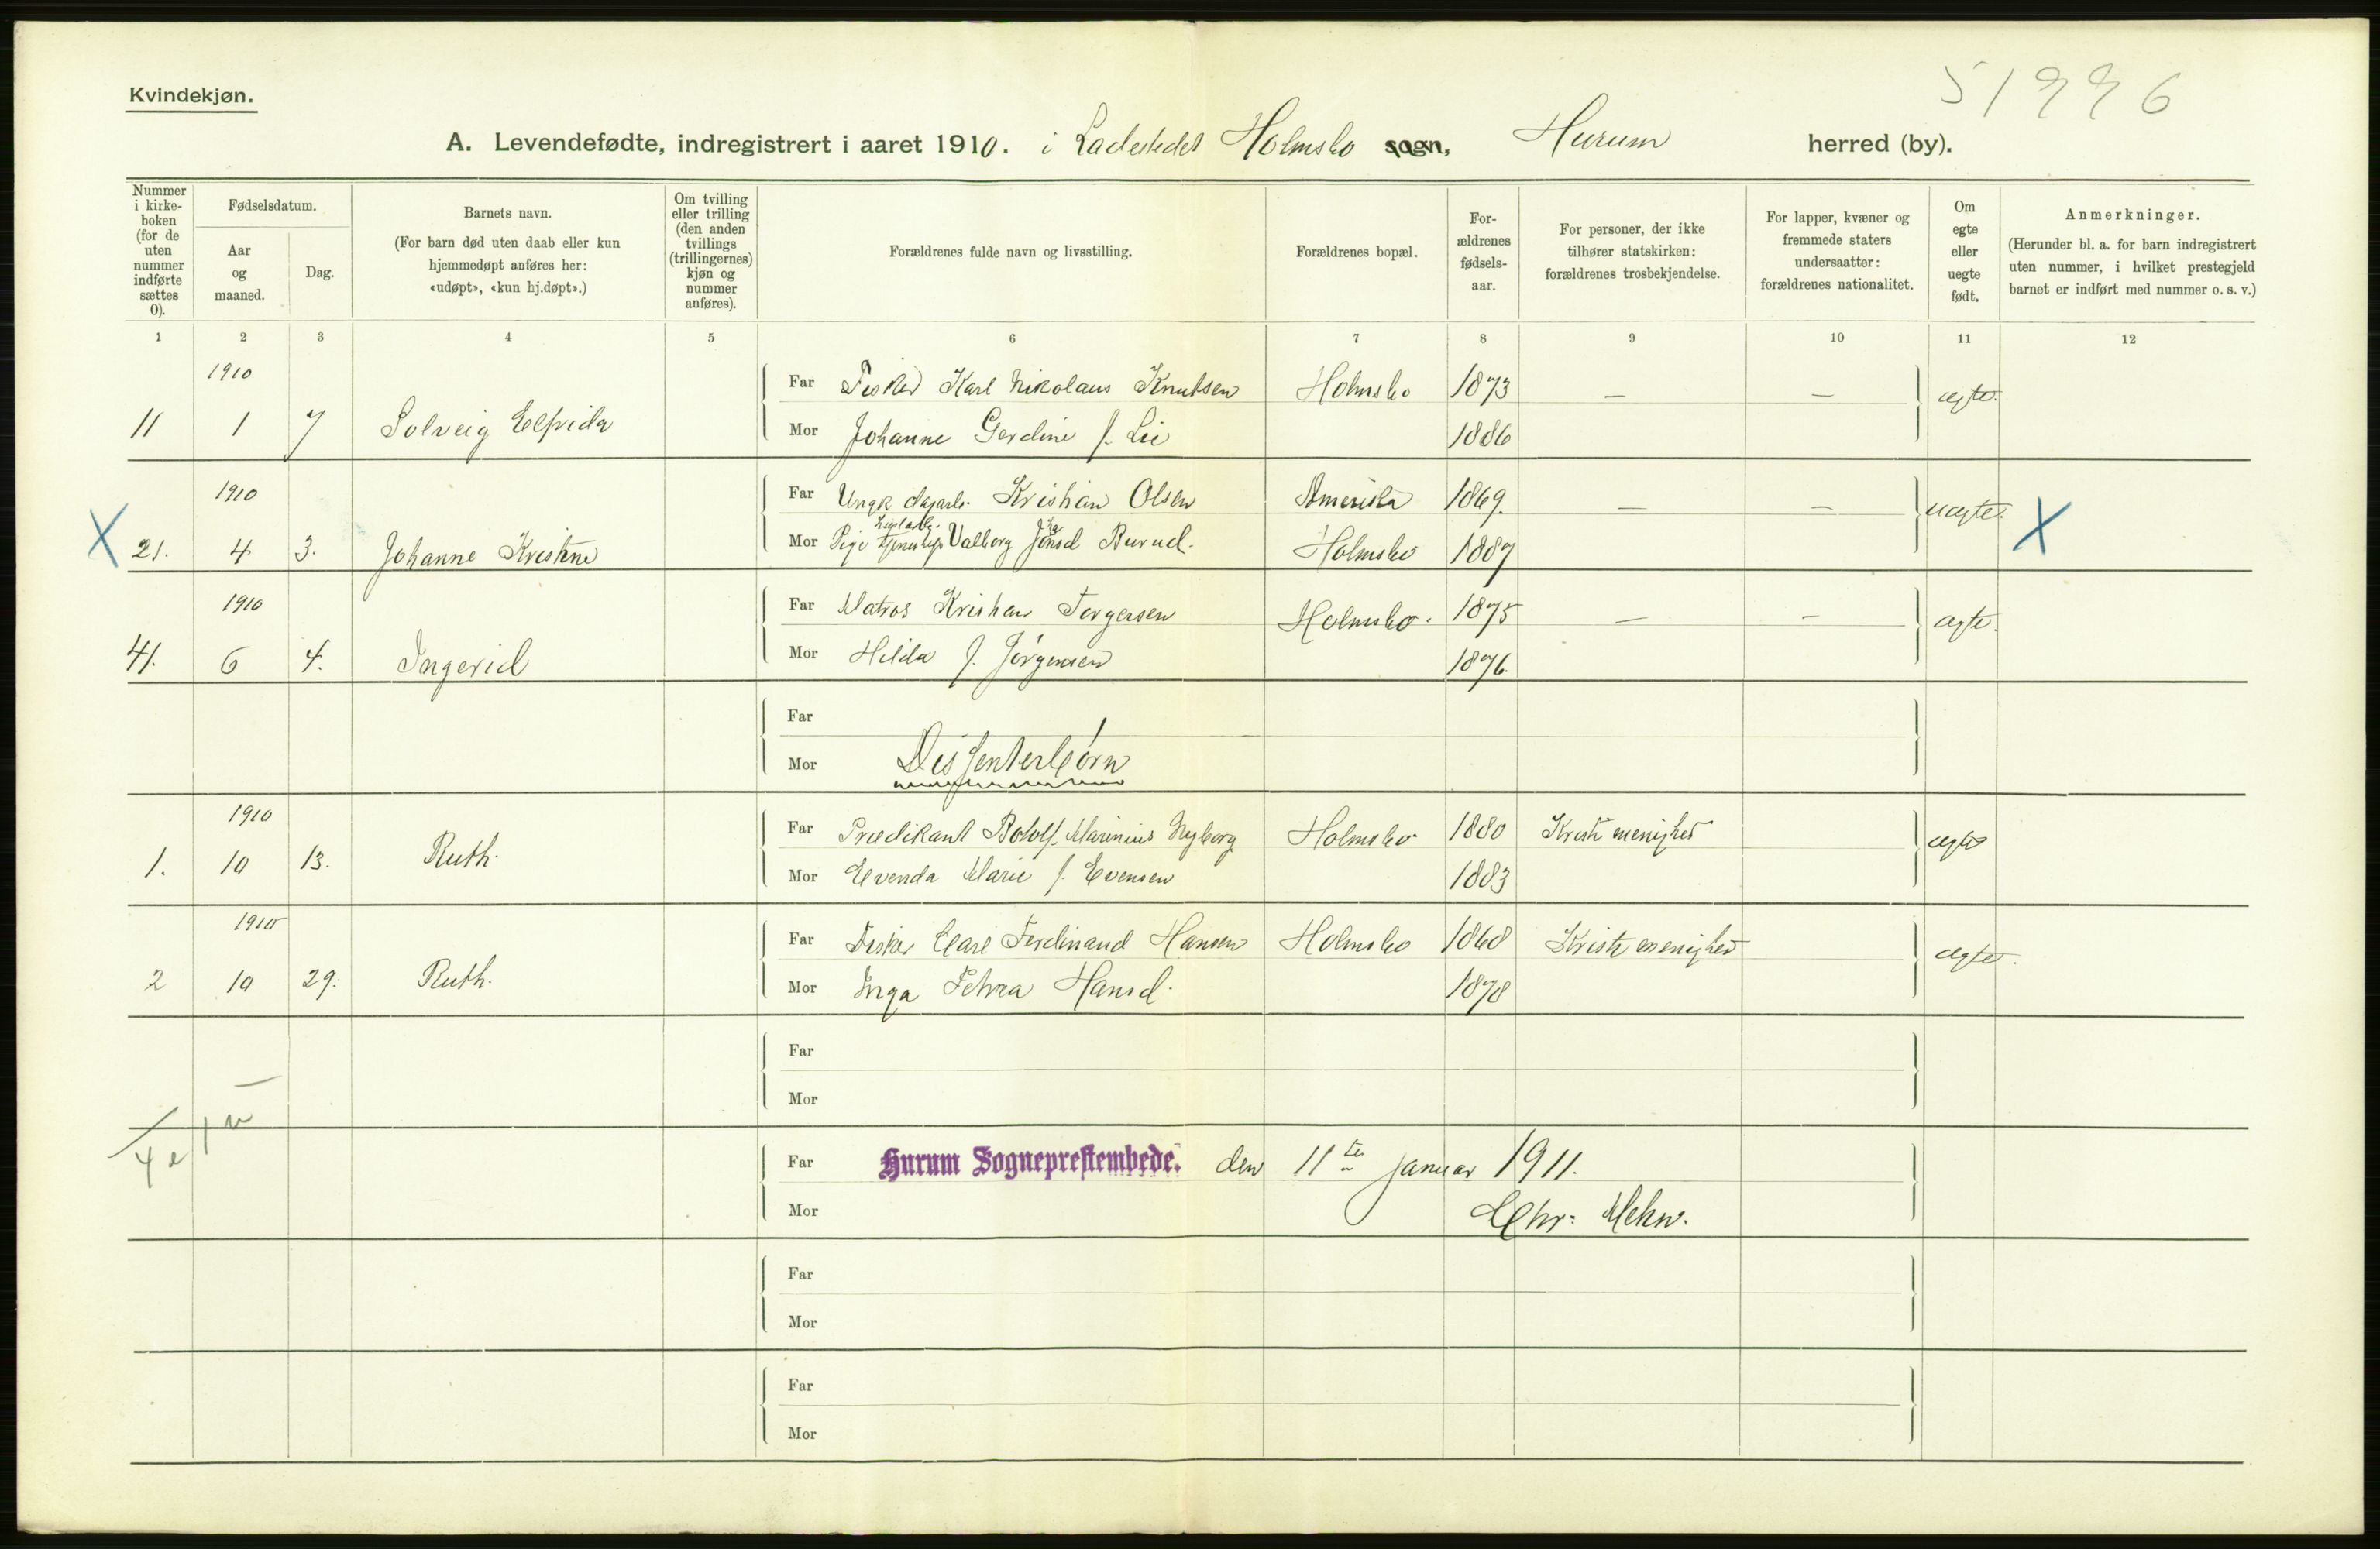 51996
Kvindekjøn.
A. Levendefødte, indregistrert i aaret 1910. i Ladestedet Holmsbo sogn, Hurum herred (by).
Nummer i kirkeboken (for de uten nummer indførte sættes 0).
Fødselsdatum.
Aar og maaned.
Dag.
Barnets navn.
(For barn død uten daab eller kun hjemmedøpt anføres her: «udøpt», «kun hj.døpt».)
Om tvilling eller trilling (den anden tvillings (trillingernes) kjøn og nummer anføres).
Forældrenes fulde navn og livsstilling.
Forældrenes bopæl.
For-ældrenes fødsels-aar.
For personer, der ikke tilhører statskirken: forældrenes trosbekjendelse.
For lapper, kvæner og fremmede staters undersaatter: forældrenes nationalitet.
Om egte eller uegte født.
Anmerkninger.
(Herunder bl. a. for barn indregistrert uten nummer, i hvilket prestegjeld barnet er indført med nummer o. s. v.)
1 2 3 4 5 6 7 8 9 10 11 12
1910 Far Fisker Karl Nikolaus Knutsen Holmsbo 1873 — — ægte.
11 1 7 Solveig Elfrida Mor Johanne Gerdine f. Lie 1886
1910 Far Ungk. dagarb. Kristian Olsen Amerika 1869. — — uægte.
X 21. 4 3. Johanne Kristine Mor Pige Valborg Burud. Holmsbo 1887 X
1910 Far Matros Kristian Torgersen Holmsbo. 1875 — — ægte.
41. 6 4. Ingerid Mor Hilda f. Jörgensen 1876.
Far
Mor Dissenterbørn
1910 Far Prædikant Botolf Marinius Nyborg Holmsbo 1880 Kristi menighed ægte
1. 10 13. Ruth. Mor Evenda Marie f. Evensen 1883
1910 Far Fisker Carl Ferdinand Hansen Holmsbo 1868 Kristi menighed ægte.
2 10 29. Ruth. Mor Inga Petra Hansd. 1878
Far
Mor
4 e 1 u
Far Hurum Sogneprestembede. den 11te januar 1911.
Mor Chr:
Far
Mor
Far
Mor